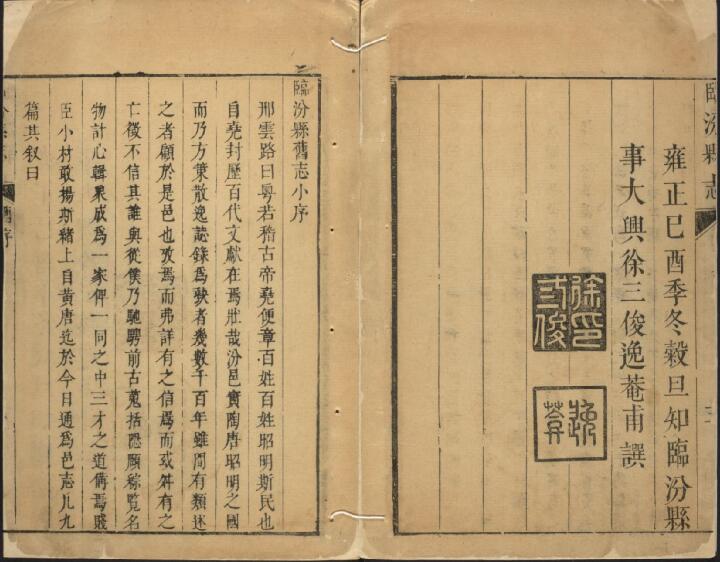 臨汾縣志
雍正己酉季冬穀旦知臨汾縣
事大興徐三俊逸菴甫譔
徐三俊印
逸菴
臨汾縣舊志小序
邢雲路曰粵若稽古帝堯便章百姓百姓昭明斯民也
自堯封歷百代文獻在焉壯哉汾邑實陶唐昭明之國
而乃方策散逸誌錄為歎者幾數千百年雖間有類述
之者顧於是邑也攷焉而弗詳有之信焉而或舛有之
亡徵不信其誰與從僕乃馳騁前古蒐括隱顯綜覽名
物計心輯纍成為一家俾一同之中三才之道備焉賤
臣小村敢揚斯緒上自黃唐迄於今日通為邑志凡九
篇其叙曰
舊序